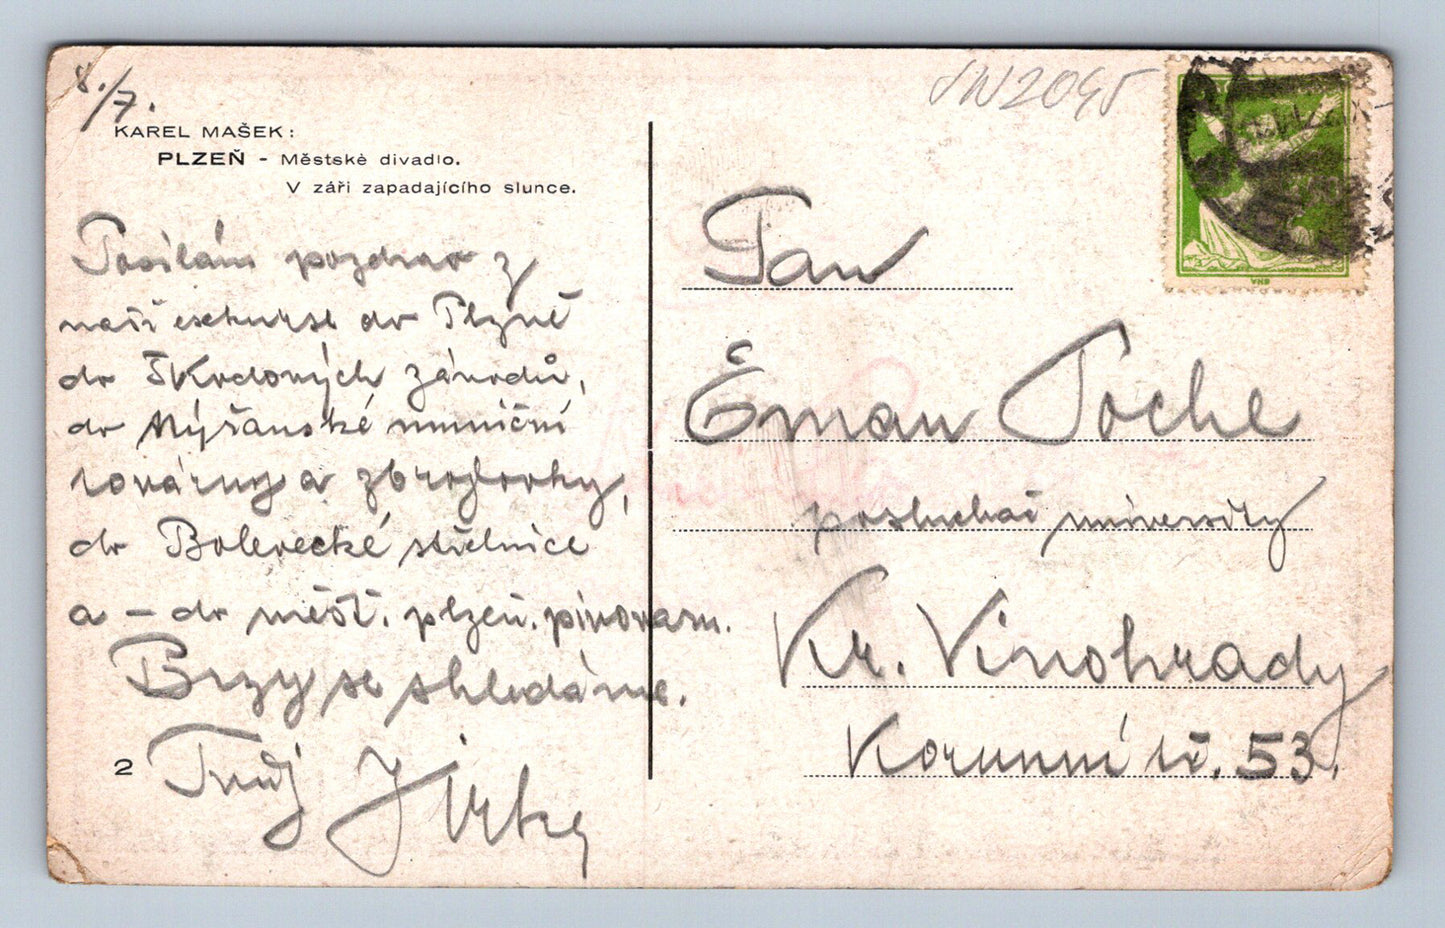 8./7.
JN2095
KAREL MAŠEK:
PLZEŇ - Městské divadlo.
V záři zapadajícího slunce.
Posílám pozdrav z
naší exkurse do Plzně
do Škodových závodů,
do Nýřanské muniční
továrny a zbrojovky,
do Bolevecké střelnice
a - do měšť. plzeň. pivovaru.
Brzy se shledáme.
Tvůj Jirka
2
Pan
Eman Poche
posluchač university
Kr. Vinohrady
Korunní tř. 53.